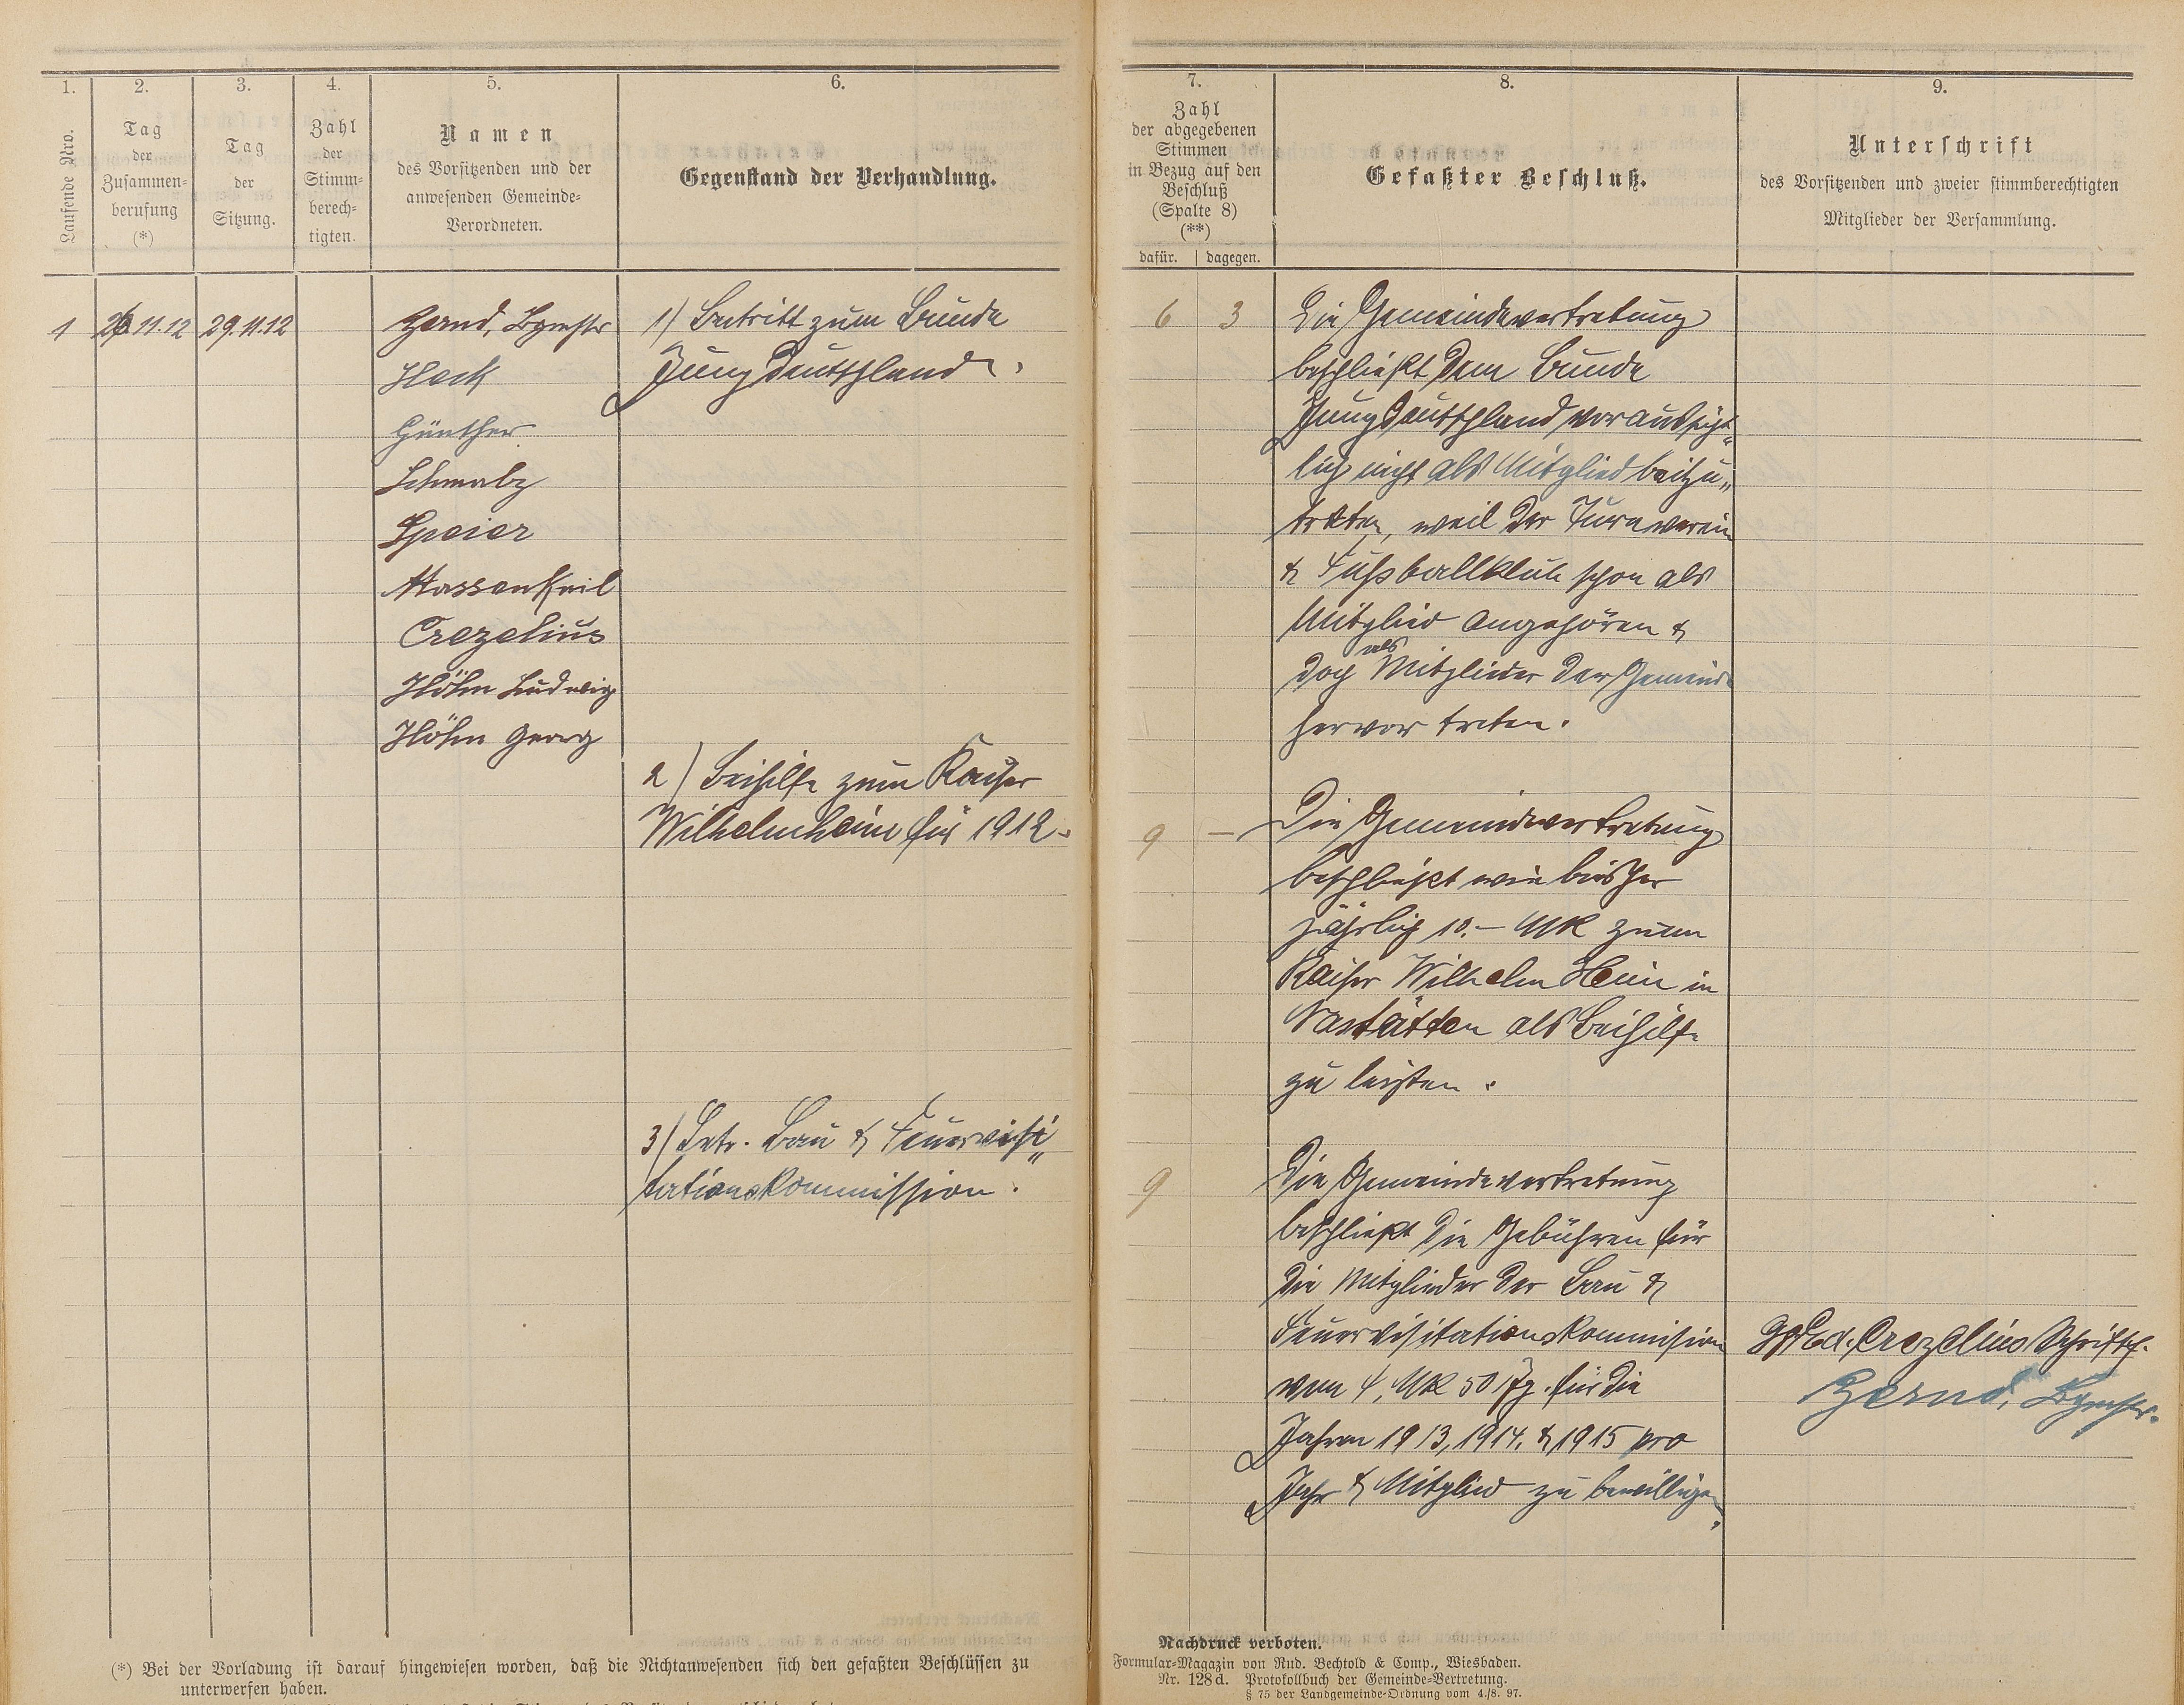 1.
Laufende Nro.
2.
Tag
der
Zusammen-
berufung
(*)
3.
Tag
der
Sitzung.
4.
Zahl
der
Stimm-
berech-
tigten.
5.
Namen
des Vorsitzenden und der
anwesenden Gemeinde-
Verordneten.
6.
Gegenstand der Verhandlung.
1
26 11.12
29.11.12
Zernd, Bgmstr
Heck
Günther
Schmalz
Speier
Massenkeil
Crezelius
Höhn Ludwig
Höhn Georg
1) Beitritt zum Bunde
Jungdeutschland.
2) Beihilfe zum Kaiser
Wilhelmheim für 1912.
3) Betr. Bau & Feuervisi„
tationskommission.
(*) Bei der Vorladung ist darauf hingewiesen worden, daß die Nichtanwesenden sich den gefaßten Beschlüssen zu
unterwerfen haben.
7.
Zahl
der abgegebenen
Stimmen
in Bezug auf den
Beschluß
(Spalte 8)
(**)
dafür. dagegen.
8.
Gefaßter Beschluß.
9.
Unterschrift
des Vorsitzenden und zweier stimmberechtigten
Mitglieder der Versammlung.
6 3
Die Gemeindevertretung
beschließt dem Bunde
Jungdeutschland voraussicht„
lich nicht als Mitglied beizu„
treten, weil der Turnverein
& Fußballklub schon als
Mitglied angehören &
doch als Mitglieder der Gemeinde
hervor treten.
9 —
Die Gemeindevertretung
beschließt wie bisher
jährlich 10.– MK zum
Kaiser Wilhelm Heim in
Nastätten als Beihilfe
zu leisten.
9
Die Gemeindevertretung
beschließt die Gebühren für
die Mitglieder der Bau &
Feuervisitationskommision
von 4, MK 50 Pfg. für die
Jahren 1913, 1914. & 1915 pro
Jahr & Mitglied zu bewilligen.
Crezelius Schriftf.
Zernd, Bgmstr.
Nachdruck verboten.
Formular-Magazin von Rud. Bechtold & Comp., Wiesbaden.
Nr. 128d. Protokollbuch der Gemeinde-Vertretung.
§ 75 der Landgemeinde-Ordnung vom 4./8. 97.